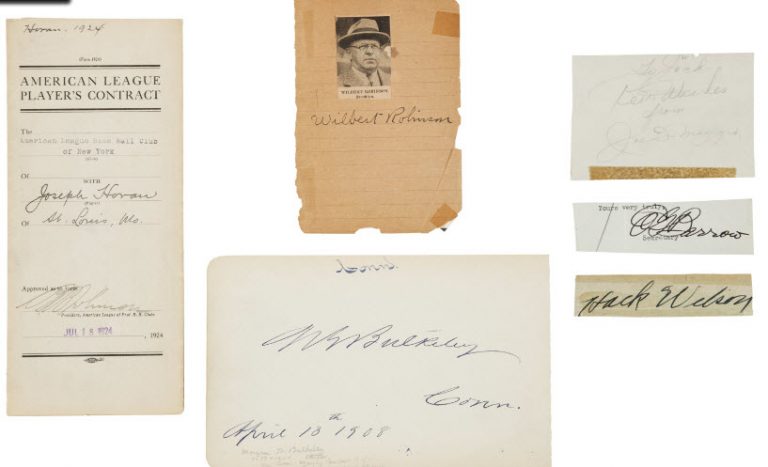 Hovan. 1924
(Form 1921)
AMERICAN LEAGUE
PLAYER'S CONTRACT
The
American League Base Ball Club
of New York
(Club)
WITH
Of
Joseph Hovan
(Player)
Of St. Louis, Mo.
Approved
President, American League of Prof. B. B. Clubs
JUL 18 1924, 1924
WILBERT ROBINSON
Brooklyn.
Wilbert Robinson
Conn.
M G Bulkeley
Conn.
April 13th 1908
To Jack
Best Wishes
from
Joe DiMaggio
Yours very truly,
E G Barrow
Secretary
Hack Wilson